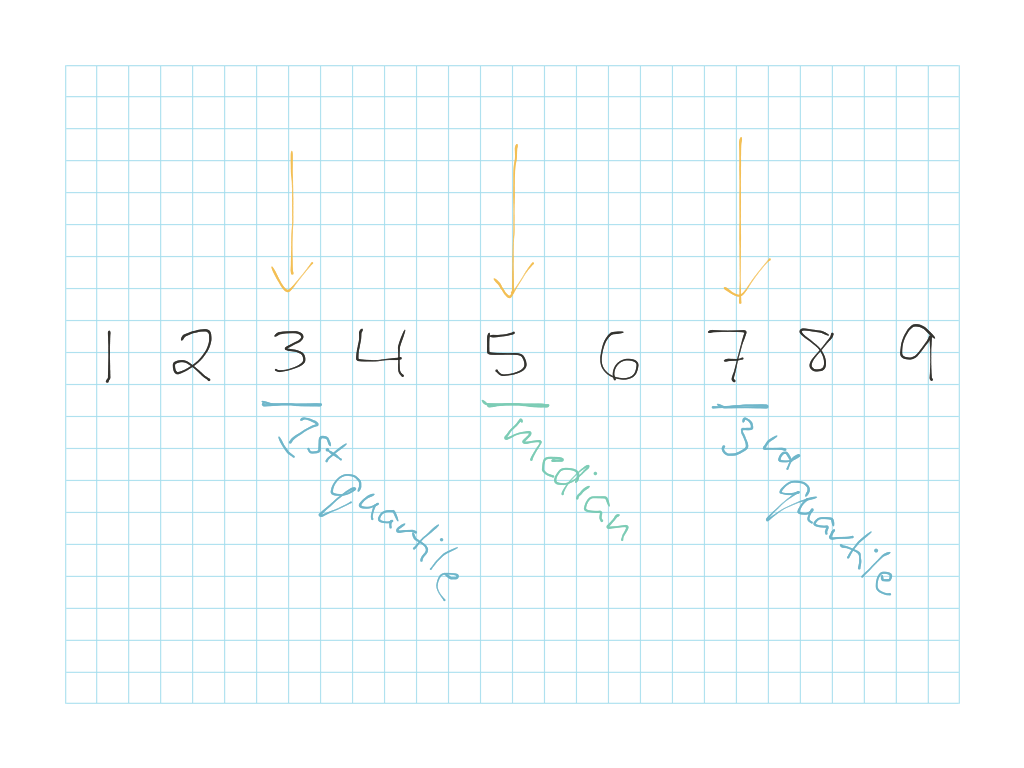 1 2 3 4 5 6 7 8 9
1st quantile
median
3rd quantile